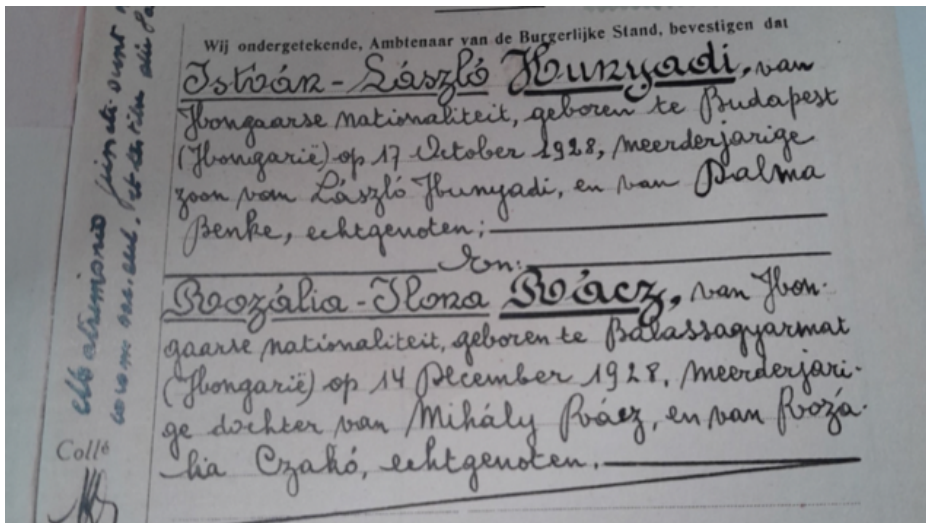 Wij ondergetekende, Ambtenaar van de Burgerlijke Stand, bevestigen dat
István-László Hunyadi, van
Hongaarse nationaliteit, geboren te Budapest
(Hongarië) op 17 October 1928, meerderjarige
zoon van László Hunyadi, en van Dalma
Benke, echtgenoten;
En:
Rozália-Ilona Rácz, van Hon-
gaarse nationaliteit, geboren te Balassagyarmat
(Hongarië) op 14 December 1928, meerderjari-
ge dochter van Mihály Rácz, en van Rozá-
lia Czakó, echtgenoten.
Matrimonio
Collé